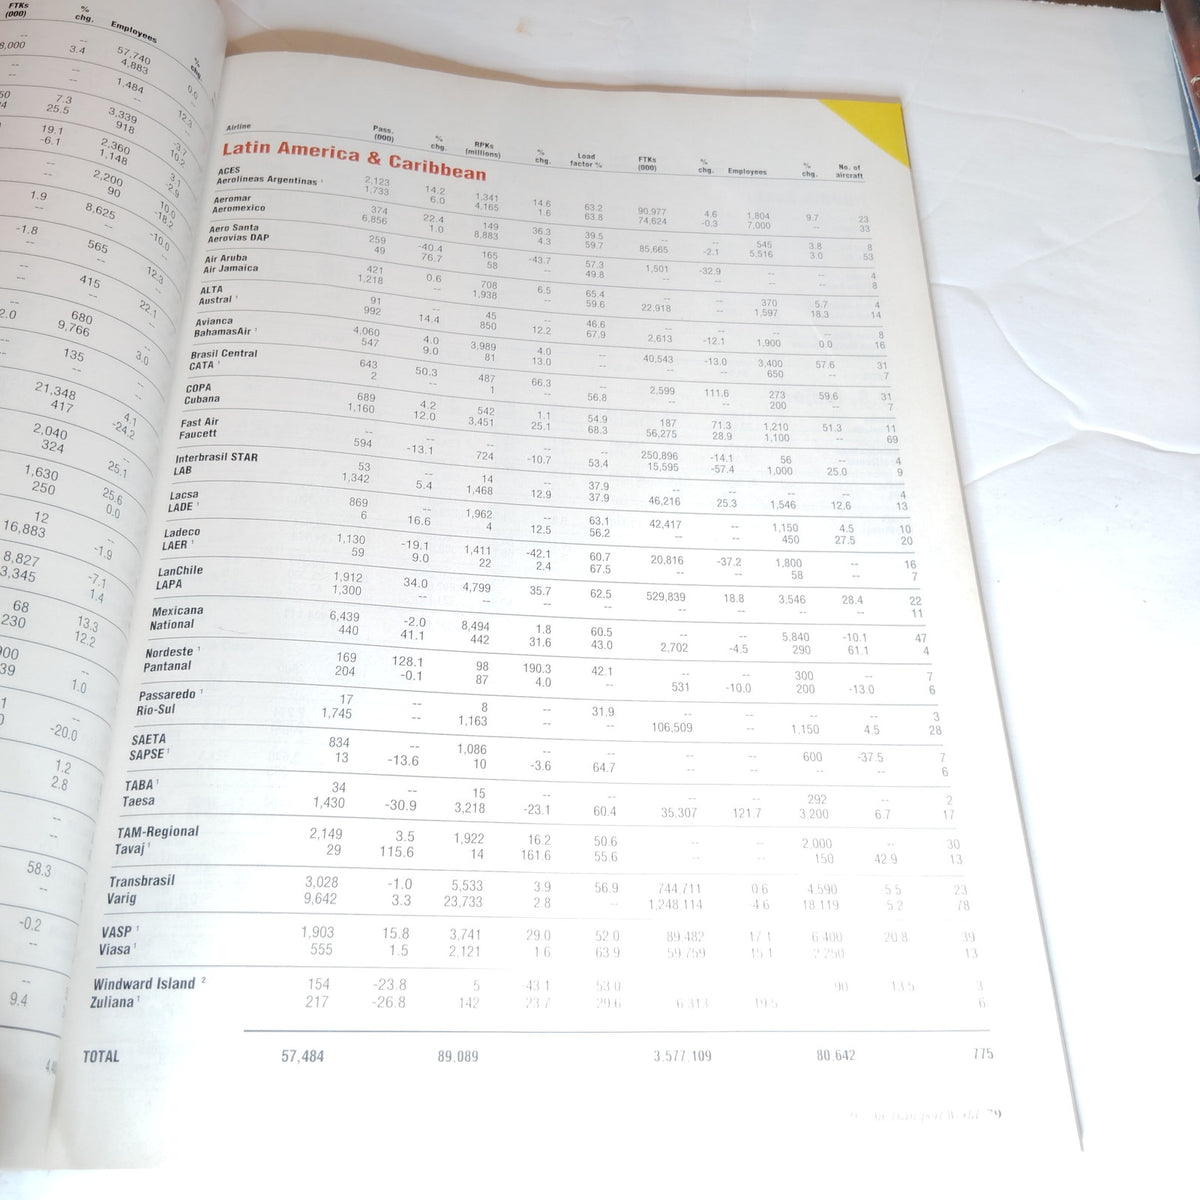 FTKs
(000) % chg. Employees % chg.
-- -- 57,740 0.0
8,000 3.4 4,883 --
-- -- 1,484 12.3
-- -- -- --
50 7.3 3,339 -3.7
4 25.5 918 10.2
19.1 2,360 3.1
-6.1 1,148 -2.9
-- 2,200 10.0
-- 90 -18.2
1.9 8,625 -10.0
-- -- --
-1.8 565 12.3
-- -- --
-- 415 22.1
-- -- --
-- 680 --
2.0 9,766 3.0
-- 135 --
-- -- --
21,348 4.1
417 -24.2
2,040 25.1
324 --
1,630 25.6
250 0.0
12 --
16,883 -1.9
8,827 -7.1
3,345 1.4
68 13.3
230 12.2
900 1.0
39 --
1 -20.0
0 --
1.2
2.8
--
--
58.3
--
-0.2
--
--
9.4
Airline Pass. (000) % chg. RPKs (millions) % chg. Load factor % FTKs (000) % chg. Employees % chg. No. of aircraft
Latin America & Caribbean
ACES 2,123 14.2 1,341 14.6 63.2 90,977 4.6 1,804 9.7 23
Aerolineas Argentinas ¹ 1,733 6.0 4,165 1.6 63.8 74,624 -0.3 7,000 -- 33
Aeromar 374 22.4 149 36.3 39.5 -- -- 545 3.8 8
Aeromexico 6,856 1.0 8,883 4.3 59.7 85,665 -2.1 5,516 3.0 53
Aero Santa 259 -40.4 165 -43.7 57.3 1,501 -32.9 -- -- 4
Aerovias DAP 49 76.7 58 -- 49.8 -- -- -- -- 8
Air Aruba 421 0.6 708 6.5 65.4 -- -- 370 5.7 4
Air Jamaica 1,218 -- 1,938 -- 59.6 22,918 -- 1,597 18.3 14
ALTA 91 -- 45 -- 46.6 -- -- -- -- 8
Austral ¹ 992 14.4 850 12.2 67.9 2,613 -12.1 1,900 0.0 16
Avianca 4,060 4.0 3,989 4.0 -- 40,543 -13.0 3,400 57.6 31
BahamasAir ¹ 547 9.0 81 13.0 -- -- -- 650 -- 7
Brasil Central 643 50.3 487 66.3 -- 2,599 111.6 273 59.6 31
CATA ¹ 2 -- 1 -- 56.8 -- -- 200 -- 7
COPA 689 4.2 542 1.1 54.9 187 71.3 1,210 51.3 11
Cubana 1,160 12.0 3,451 25.1 68.3 56,275 28.9 1,100 -- 69
Fast Air -- -- -- -- -- 250,896 -14.1 56 -- 4
Faucett 594 -13.1 724 -10.7 53.4 15,595 -57.4 1,000 25.0 9
Interbrasil STAR 53 -- 14 -- 37.9 -- -- -- -- 4
LAB 1,342 5.4 1,468 12.9 37.9 46,216 25.3 1,546 12.6 13
Lacsa 869 -- 1,962 -- 63.1 42,417 -- 1,150 4.5 10
LADE ¹ 6 16.6 4 12.5 56.2 -- -- 450 27.5 20
Ladeco 1,130 -19.1 1,411 -42.1 60.7 20,816 -37.2 1,800 -- 16
LAER ¹ 59 9.0 22 2.4 67.5 -- -- 58 -- 7
LanChile 1,912 34.0 4,799 35.7 62.5 529,839 18.8 3,546 28.4 22
LAPA 1,300 -- -- -- -- -- -- -- -- 11
Mexicana 6,439 -2.0 8,494 1.8 60.5 -- -- 5,840 -10.1 47
National 440 41.1 442 31.6 43.0 2,702 -4.5 290 61.1 4
Nordeste ¹ 169 128.1 98 190.3 42.1 -- -- 300 -- 7
Pantanal 204 -0.1 87 4.0 -- 531 -10.0 200 -13.0 6
Passaredo ¹ 17 -- 8 -- 31.9 -- -- -- -- 3
Rio-Sul 1,745 -- 1,163 -- -- 106,509 -- 1,150 4.5 28
SAETA 834 -- 1,086 -- -- -- -- 600 -37.5 7
SAPSE ¹ 13 -13.6 10 -3.6 64.7 -- -- -- -- 6
TABA ¹ 34 -- 15 -- -- -- -- 292 -- 2
Taesa 1,430 -30.9 3,218 -23.1 60.4 35,307 121.7 3,200 6.7 17
TAM-Regional 2,149 3.5 1,922 16.2 50.6 -- -- 2,000 -- 30
Tavaj ¹ 29 115.6 14 161.6 55.6 -- -- 150 42.9 13
Transbrasil 3,028 -1.0 5,533 3.9 56.9 744,711 0.6 4,590 5.5 23
Varig 9,642 3.3 23,733 2.8 -- 1,248,114 -4.6 18,119 5.2 78
VASP ¹ 1,903 15.8 3,741 29.0 52.0 89,482 17.1 6,400 20.8 39
Viasa ¹ 555 1.5 2,121 1.6 63.9 59,759 15.1 2,250 13
Windward Island ² 154 -23.8 5 -43.1 53.0 90 13.5 3
Zuliana ¹ 217 -26.8 142 23.7 29.6 6,313 19.5 6
TOTAL 57,484 89,089 3,577,109 80,642 775
Air Transport World 79